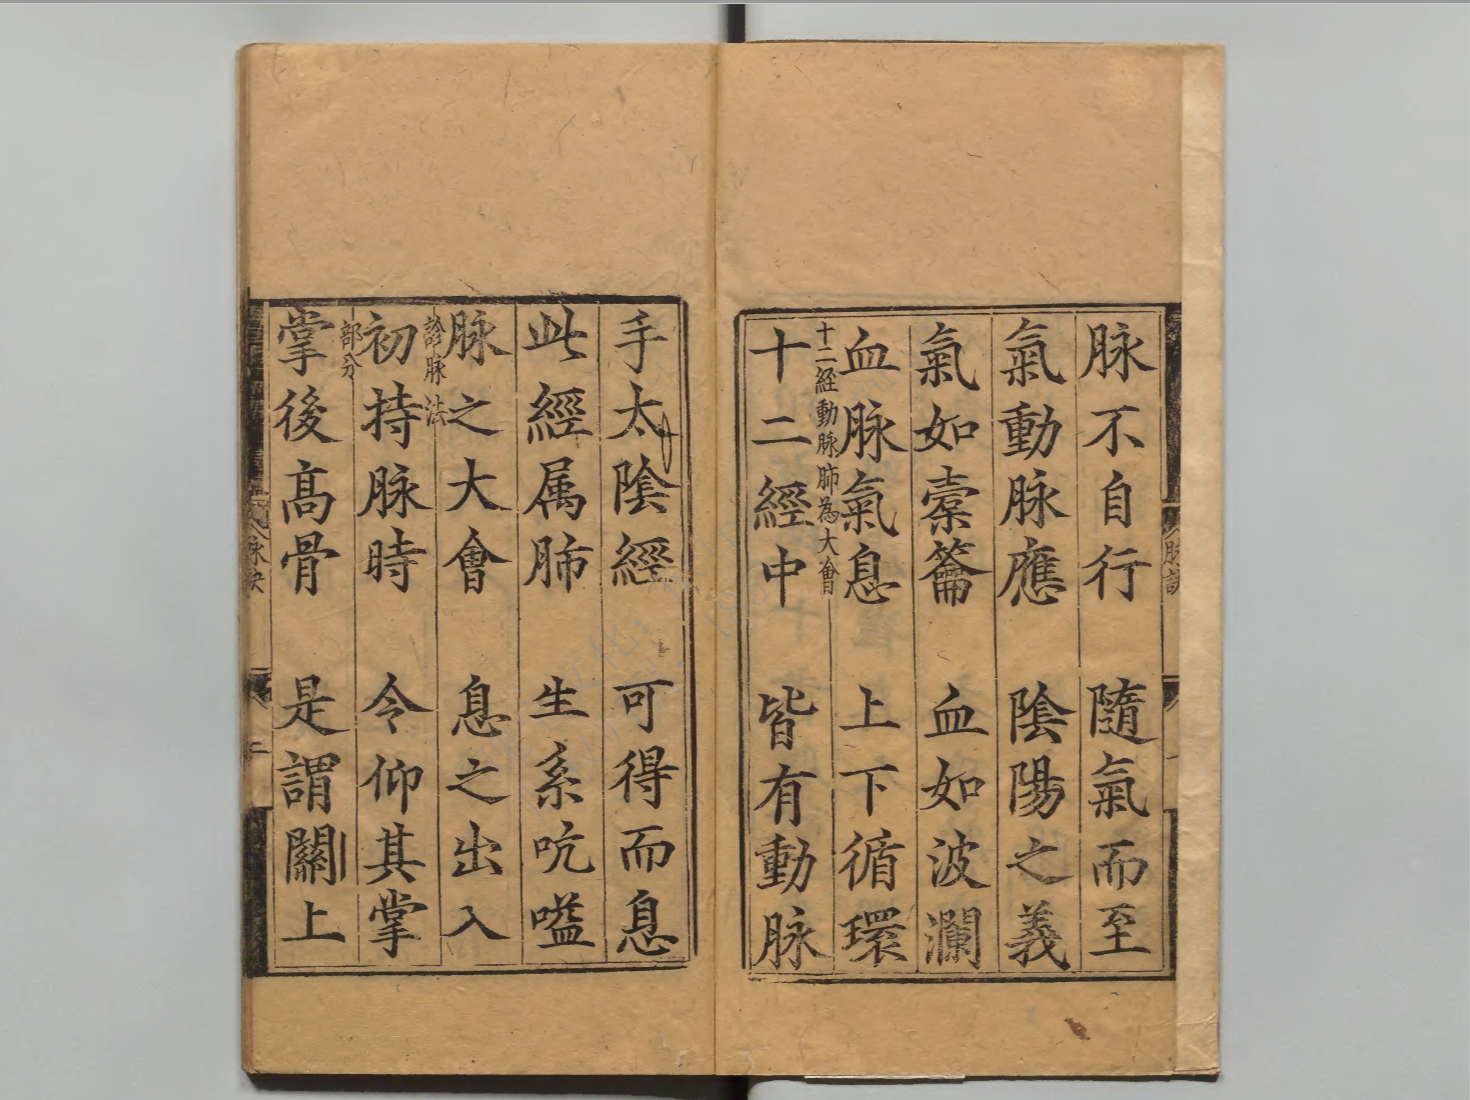 脉不自行　隨氣而至
氣動脉應　陰陽之義
氣如橐籥　血如波瀾
血脉氣息　上下循環
十二經動脉肺為大會
十二經中　皆有動脉
手太陰經　可得而息
此經属肺　生系吭嗌
脉之大會　息之出入
診脉法
初持脉時　令仰其掌
部分
掌後高骨　是謂關上
脉訣
二